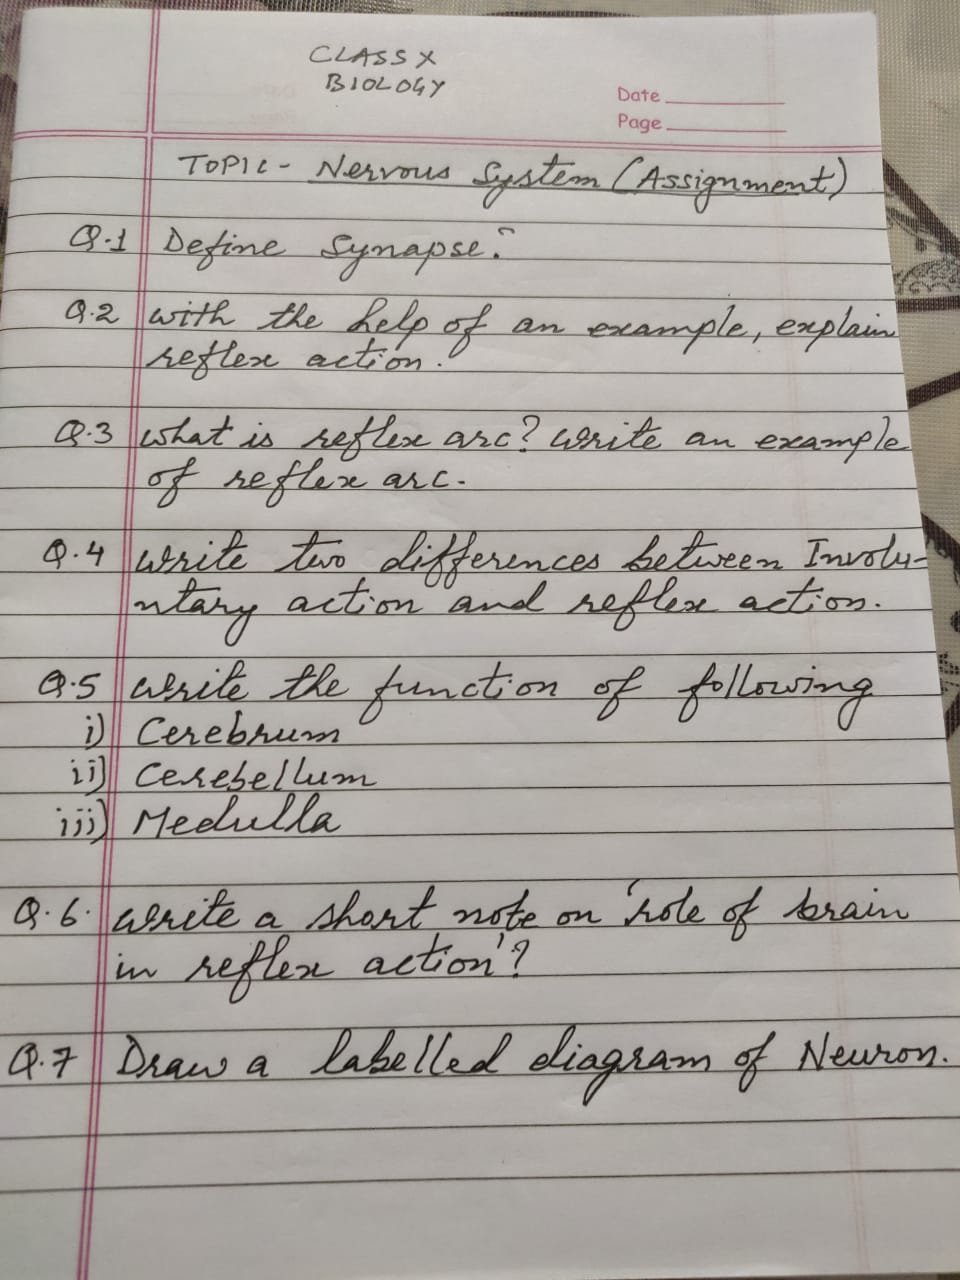 CLASS X
BIOLOGY
Date
Page
TOPIC - Nervous System (Assignment)
Q.1 Define Synapse?
Q.2 with the help of an example, explain
reflex action.
Q.3 what is reflex arc? write an example
of reflex arc.
Q.4 write two differences between Involu-
ntary action and reflex action.
Q.5 write the function of following
i) Cerebrum
ii) Cerebellum
iii) Medulla
Q.6. write a short note on 'role of brain
in reflex action'?
Q.7 Draw a labelled diagram of Neuron.